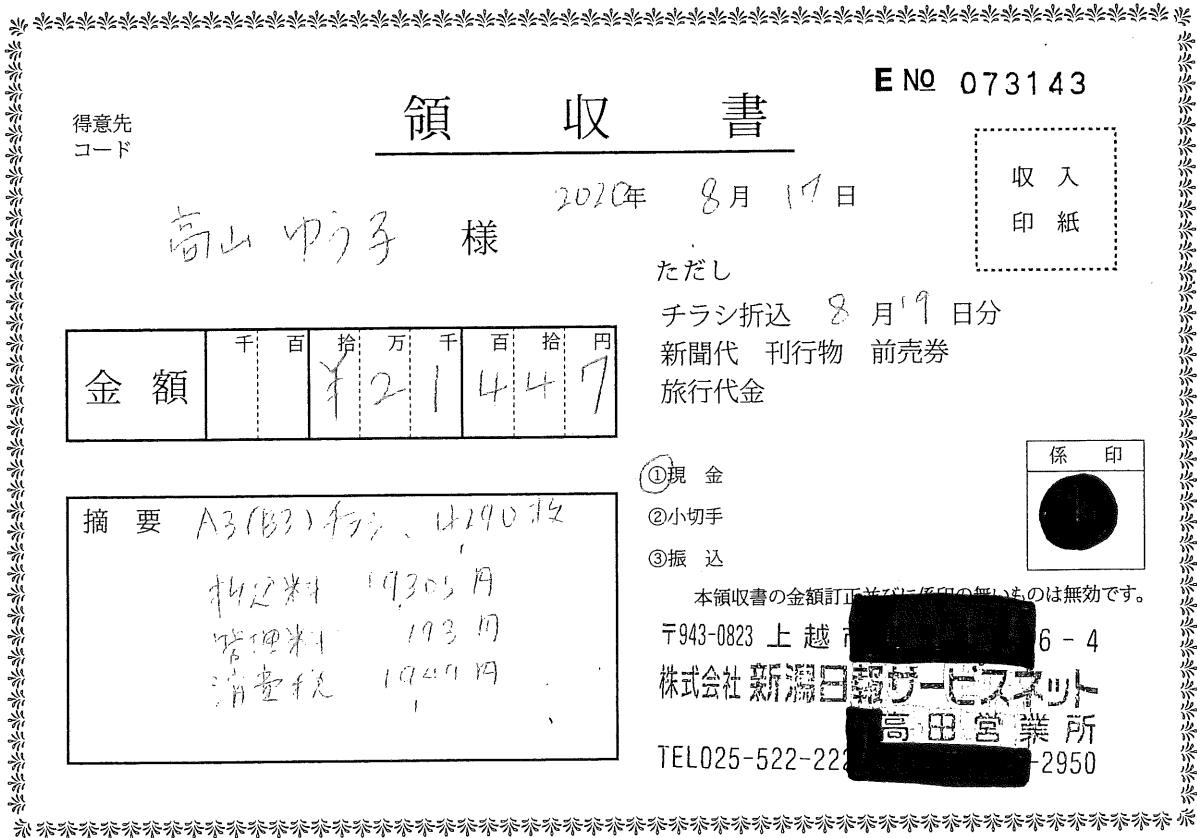 E No 073143
得意先
コード
領収書
収入
印紙
2020年 8月 17日
高山 ゆう子 様
ただし
チラシ折込 8月19日分
新聞代 刊行物 前売券
旅行代金
金額
千 百 拾 万 千 百 拾 円
¥21447
①現金
②小切手
③振込
係印
摘要 A3(B3)チラシ、4,290枚
折込料 19,305円
管理料 193円
消費税 1,949円
本領収書の金額訂正並びに係印の無いものは無効です。
〒943-0823 上越市 6-4
株式会社 新潟日報サービスネット
高田営業所
TEL025-522-222 -2950